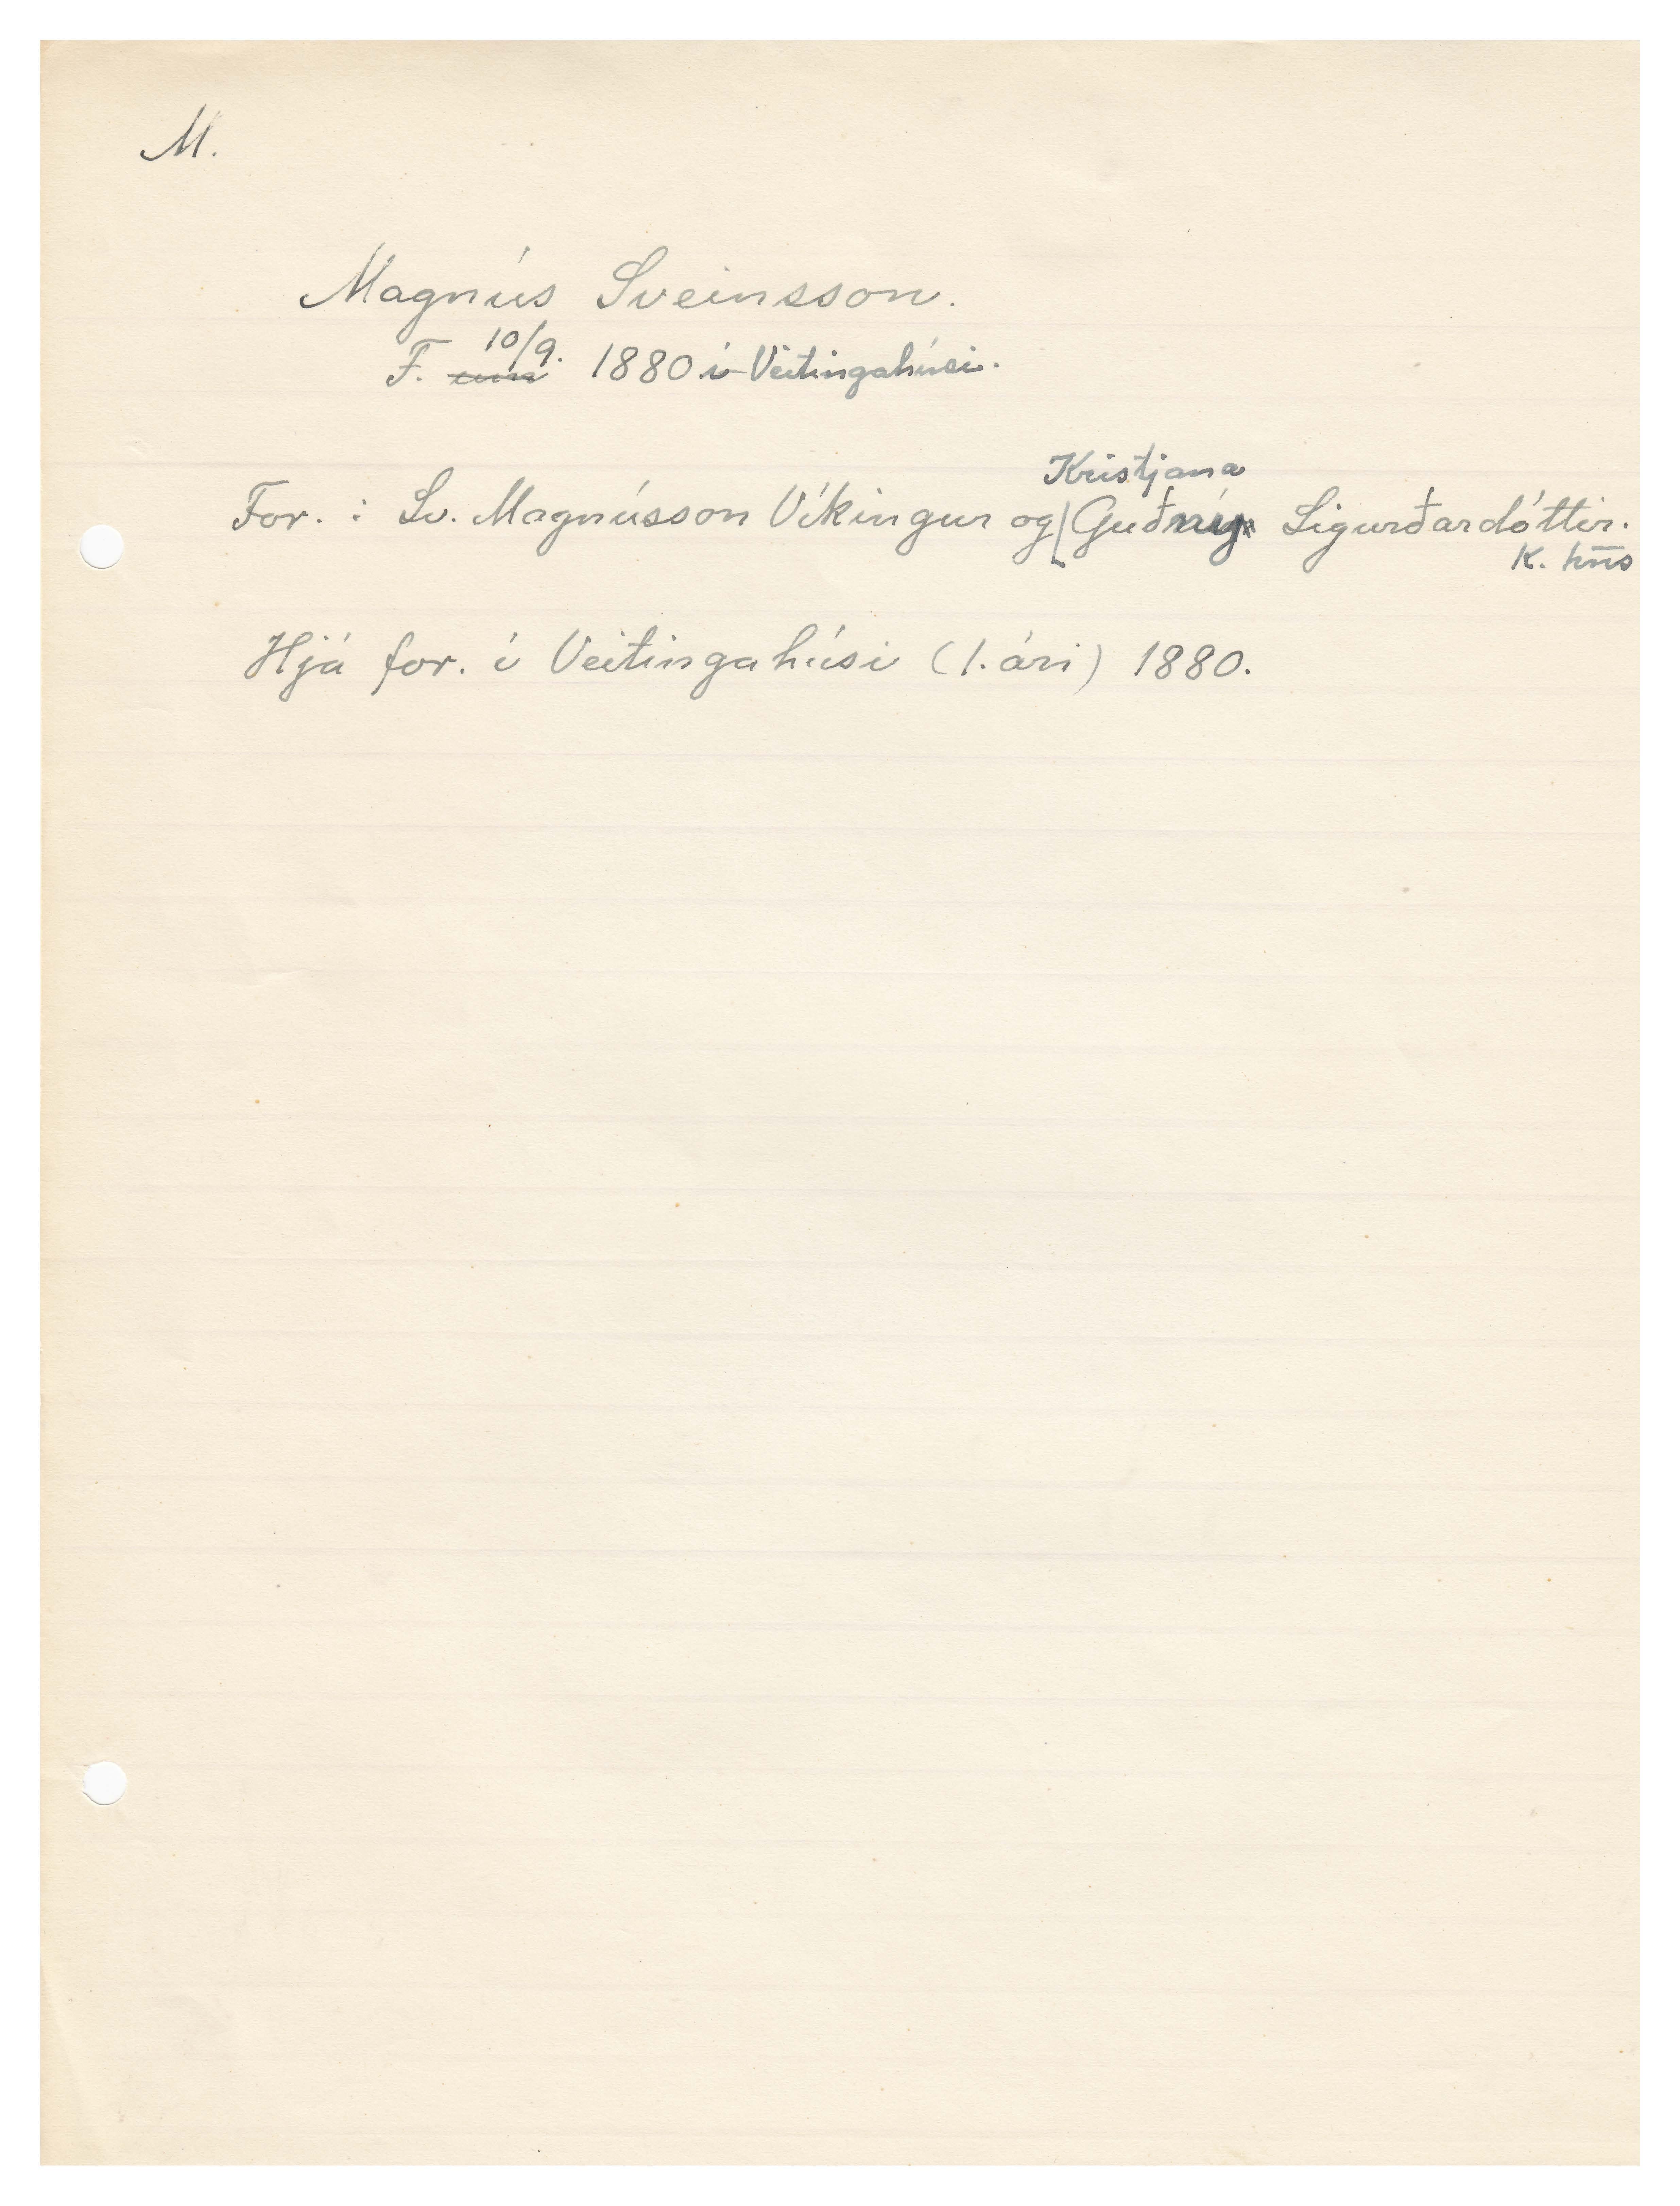 M.
Magnús Sveinsson.
F. 10/9. 1880 í Veitingahúsi.
Kristjana
For. : Sv. Magnússon Víkingur og Guðný Sigurðardóttir.
K. hns
Hjá for. í Veitingahúsi (1. ári) 1880.